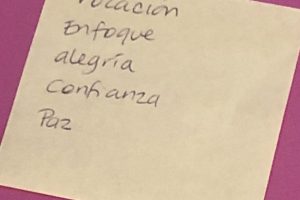 Vocación
Enfoque
alegría
Confianza
Paz